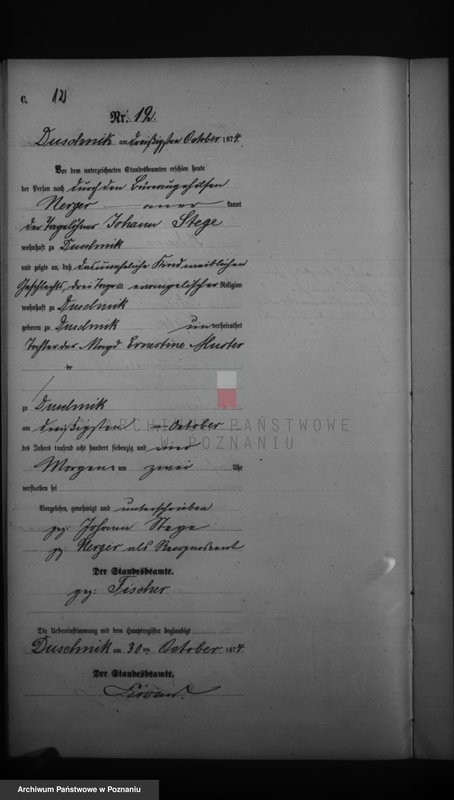 C. 12
Nr. 12.
Duschnik am dreißigsten October 1874.
Vor dem unterzeichneten Standesbeamten erschien heute
der Person nach durch den Bureaugehilfen
Nerger aner kannt
der Tagelöhner Johann Stege
wohnhaft zu Duschnik
und zeigte an, daß das uneheliche Kind weiblichen
Geschlechts, drei Tage alt evangelischer Religion
wohnhaft zu Duschnik
geboren zu Duschnik un verheirathet
Tochter der Magd Ernestine Muster
zu Duschnik
am dreißigsten October
des Jahres tausend acht hundert siebenzig und vier
Morgens um zwei Uhr
verstorben sei
Vorgelesen, genehmigt und unterschrieben
gez: Johann Stege
gez: Nerger als Recognoscent
Der Standesbeamte.
gez: Fischer
Die Uebereinstimmung mit dem Hauptregister beglaubigt
Duschnik am 30ten October 1874
Der Standesbeamte.
ARCHIWUM PAŃSTWOWE
W POZNANIU
Archiwum Państwowe w Poznaniu